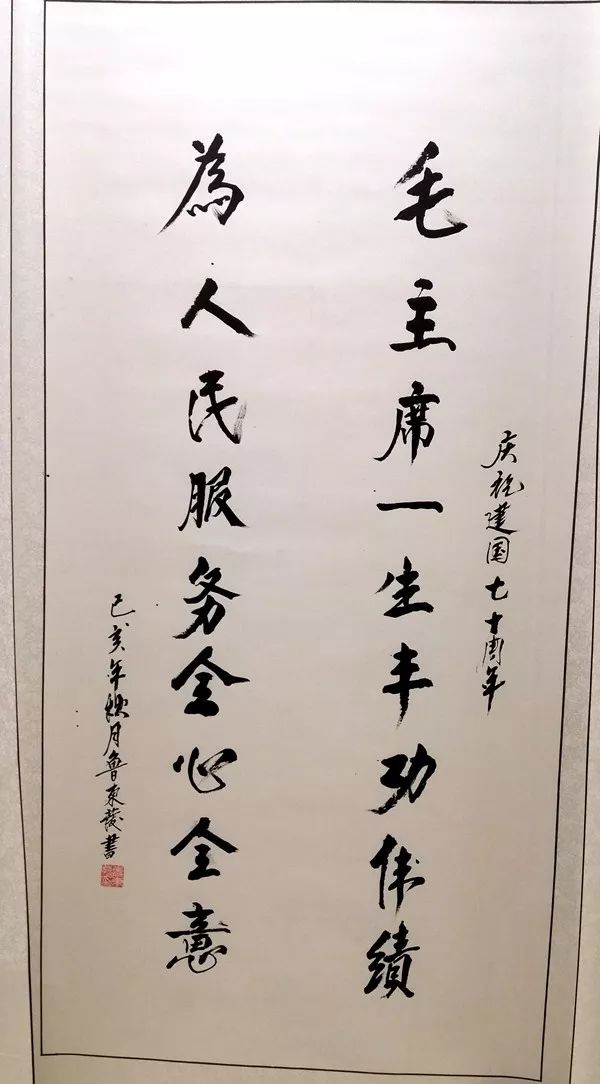 庆祝建国七十周年
毛主席一生丰功伟绩
為人民服务全心全意
己亥年秋月鲁東發書